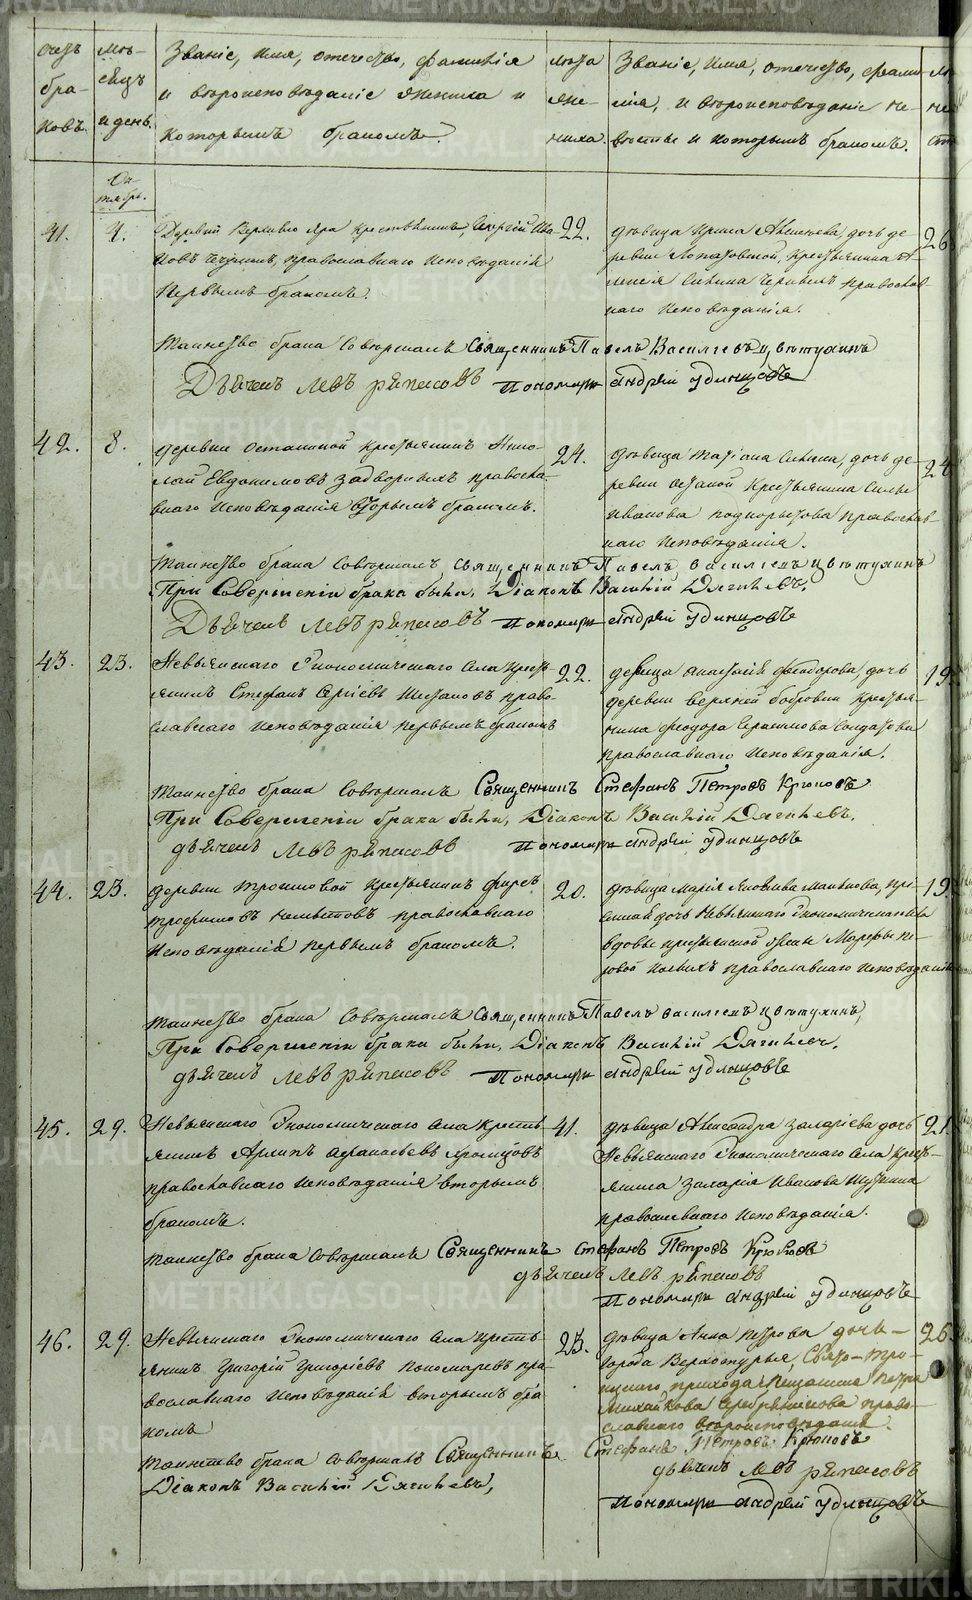 METRIKI.GASO-URAL.RU
Счетъ бра- ковъ.
Мѣ- сяцъ и день.
Званіе, имя, отечество, фамилія
и вѣроисповѣданіе жениха и
которымъ бракомъ.
Лѣта же- ниха.
Званіе, имя, отечество, фами-
лія, и вѣроисповѣданіе не-
вѣсты и которымъ бракомъ.
Ок
тябрь.
41.
4.
крестьянинъ, Георгій Ива
новъ православнаго исповѣданія
первымъ бракомъ.
22.
дѣвица Ирина Алексѣева, дочь де
ревни крестьянина А-
лексѣя православ
наго исповѣданія.
26
Таинство брака совершалъ Священникъ Павелъ Василіевъ Цвѣтухинъ
Дьячекъ Левъ Рѣпасовъ Пономарь Андрей Удинцовъ
42.
8.
деревни Осталиной крестьянинъ Нико-
лай Евдокимовъ Задворныхъ православ-
наго исповѣданія вторымъ бракомъ.
24.
дѣвица Татіана Силина, дочь де-
ревни крестьянина Силы
Иванова Подкорытова православ-
наго исповѣданія.
24
Таинство брака совершалъ Священникъ Павелъ Василіевъ Цвѣтухинъ
При совершеніи брака были, Діаконъ Василій Дягилевъ,
Дьячекъ Левъ Рѣпасовъ Пономарь Андрей Удинцовъ
43.
23.
Невьянскаго Экономическаго села кресть-
янинъ Стефанъ Сергіевъ право-
славнаго исповѣданія первымъ бракомъ
22.
девица Анастасія Феодорова, дочь
деревни верхней Бобровки крестья-
нина Феодора Солдатова
православнаго исповѣданія.
19
Таинство брака совершалъ Священникъ Стефанъ Петровъ Крюковъ
При совершеніи брака были, Діаконъ Василій Дягилевъ.
дьячекъ Левъ Рѣпасовъ Пономарь Андрей Удинцовъ
44.
23.
деревни Трошковой крестьянинъ Фирсъ
Трофимовъ православнаго
исповѣданія первымъ бракомъ.
20.
дѣвица Марія Яковлева
дочь Невьянскаго Экономическаго села
вдовы крестьянской жены Марфы
православнаго исповѣданія
19
Таинство брака совершалъ Священникъ Павелъ Василіевъ Цвѣтухинъ,
При совершеніи брака были, Діаконъ Василій Дягилевъ.
дьячекъ Левъ Рѣпасовъ Пономарь Андрей Удинцовъ
45.
29.
Невьянскаго Экономическаго села кресть-
янинъ Архипъ Афанасьевъ Храмцовъ
православнаго исповѣданія вторымъ
бракомъ.
41.
дѣвица Александра Захаріева дочь
Невьянскаго Экономическаго села кресть-
янина Захарія Иванова
православнаго исповѣданія.
21.
Таинство брака совершалъ Священникъ Стефанъ Петровъ Крюковъ
дьячекъ Левъ Рѣпасовъ
Пономарь Андрей Удинцовъ
46.
29.
Невьянскаго Экономическаго села кресть-
янинъ Григорій Григоріевъ Пономаревъ пра-
вославнаго исповѣданія вторымъ бра
комъ
23.
дѣвица Анна Петрова дочь
города Верхотурья, Свято-Тро-
ицкаго прихода мещанина Петра
Михайлова Серебрянникова право-
славнаго вѣроисповѣданія.
26
Таинство брака совершалъ Священникъ Стефанъ Петровъ Крюковъ
Діаконъ Василій Дягилевъ,
дьячекъ Левъ Рѣпасовъ
Пономарь Андрей Удинцовъ
METRIKI.GASO-URAL.RU